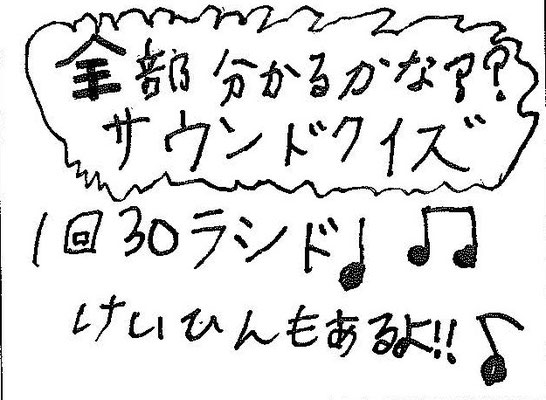 全部分かるかな??
サウンドクイズ
1回30ランド
けいひんもあるよ!!